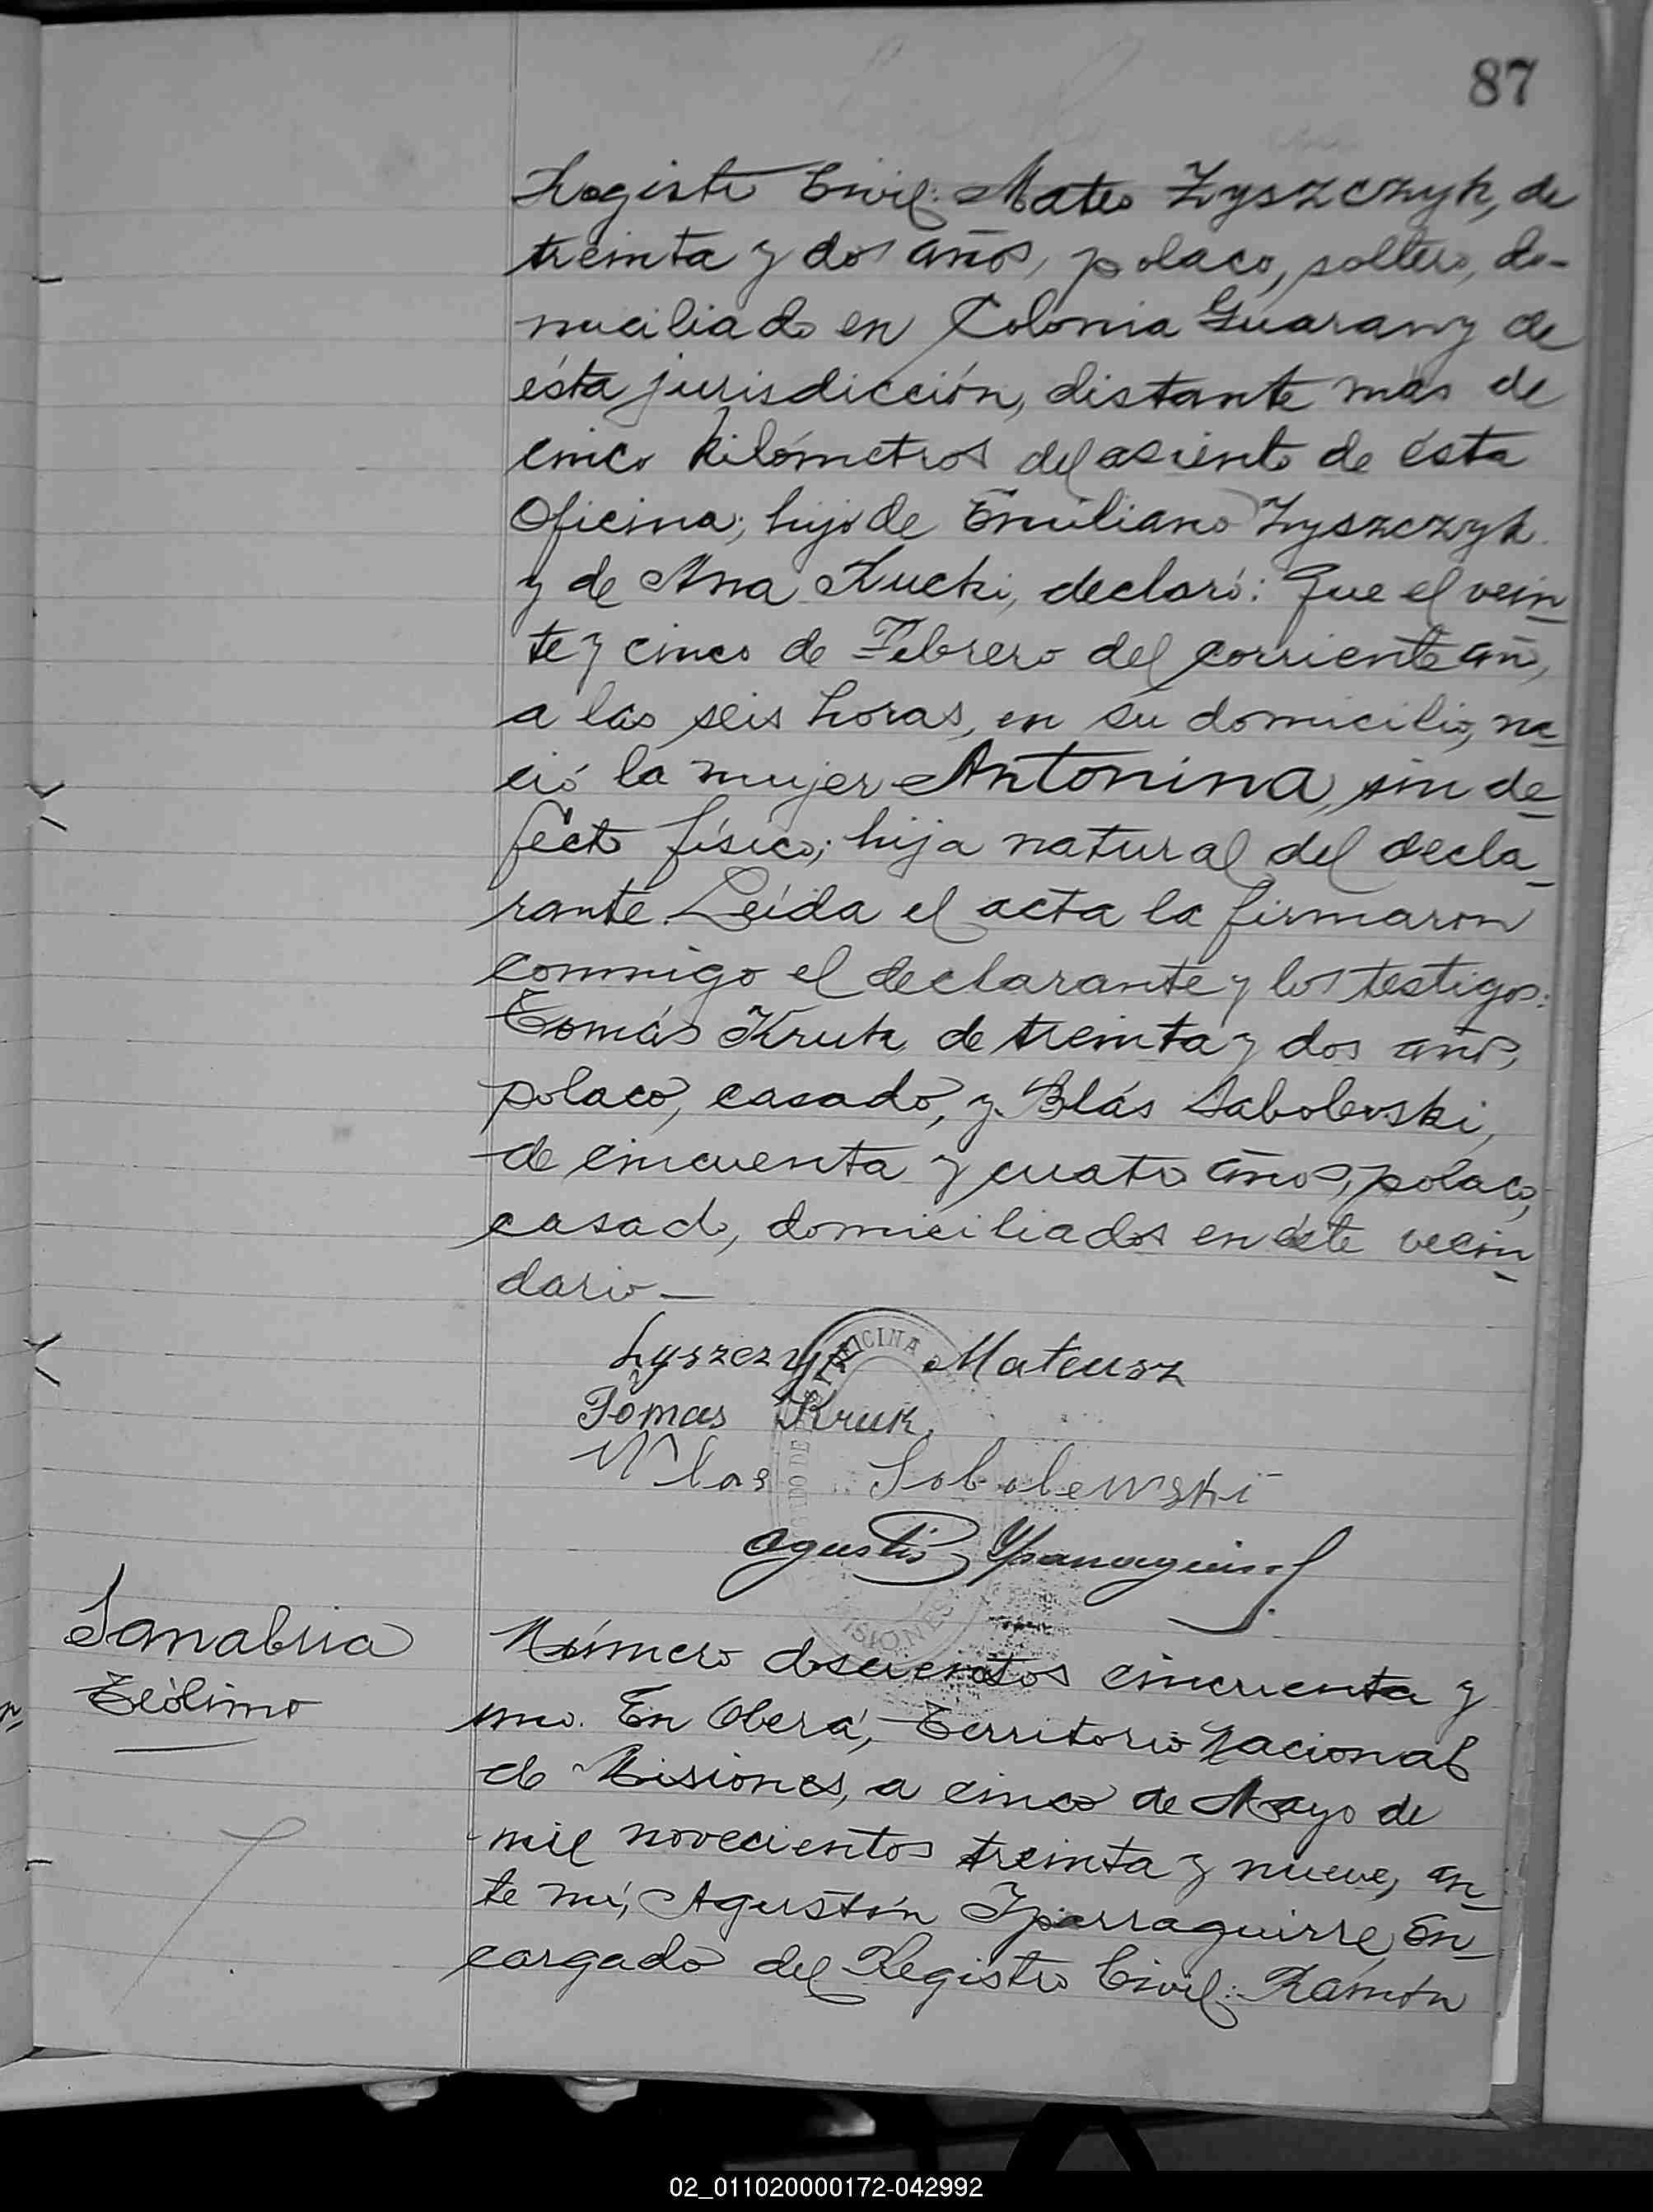 87
Registro Civil: Mateo Zyszczyk, de
treinta y dos años, polaco, soltero, do-
miciliado en Colonia Guarany de
ésta jurisdicción, distante más de
cinco kilómetros del asiento de ésta
Oficina; hijo de Emiliano Zyszczyk
y de Ana Kucki, declaró: Que el vein-
te y cinco de Febrero del corriente año,
a las seis horas, en su domicilio, na-
ció la mujer Antonina, sin de-
fecto físico; hija natural del decla-
rante. Leída el acta la firmaron
conmigo el declarante y los testigos:
Tomás Kruk de treinta y dos años,
polaco, casado, y Blás Sabolevski,
de cincuenta y cuatro años, polaco,
casado, domiciliados en éste vecin-
dario—
Łyszczyk Mateusz
Tomas Kruk
Wlas Sobolewski
Agustín Yparraguirre
OFICINA DE
MISIONES
Sanabria
Teólimo
Número doscientos cincuenta y
uno. En Oberá, Territorio Nacional
de Misiones, a cinco de Mayo de
mil novecientos treinta y nueve, an-
te mí, Agustín Yparraguirre, En-
cargado del Registro Civil: Ramón
02_011020000172-042992